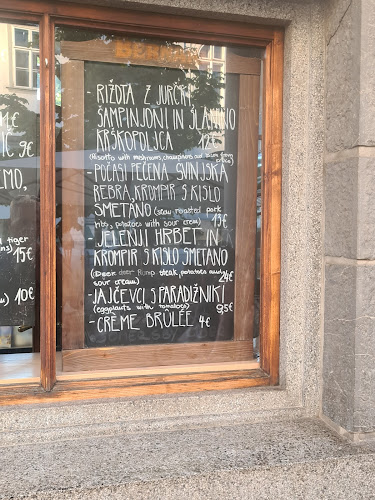 - RIŽOTA Z JURČKI,
ŠAMPINJONI IN SLANINO
KRŠKOPOLJCA 12€
(Risotto with mushrooms, champions and
- POČASI PEČENA SVINJSKA
REBRA, KROMPIR S KISLO
SMETANO (slow roasted pork
ribs, potatoes with sour cream) 15€
- JELENJI HRBET IN
KROMPIR S KISLO SMETANO
(Deer rump steak, potatoes and
sour cream) 24€
- JAJČEVCI S PARADIŽNIKI
(eggplants with tomatoes) 9,5€
- CRÈME BRÛLÉE 4€
9€
EMO,
tiger
15€
10€